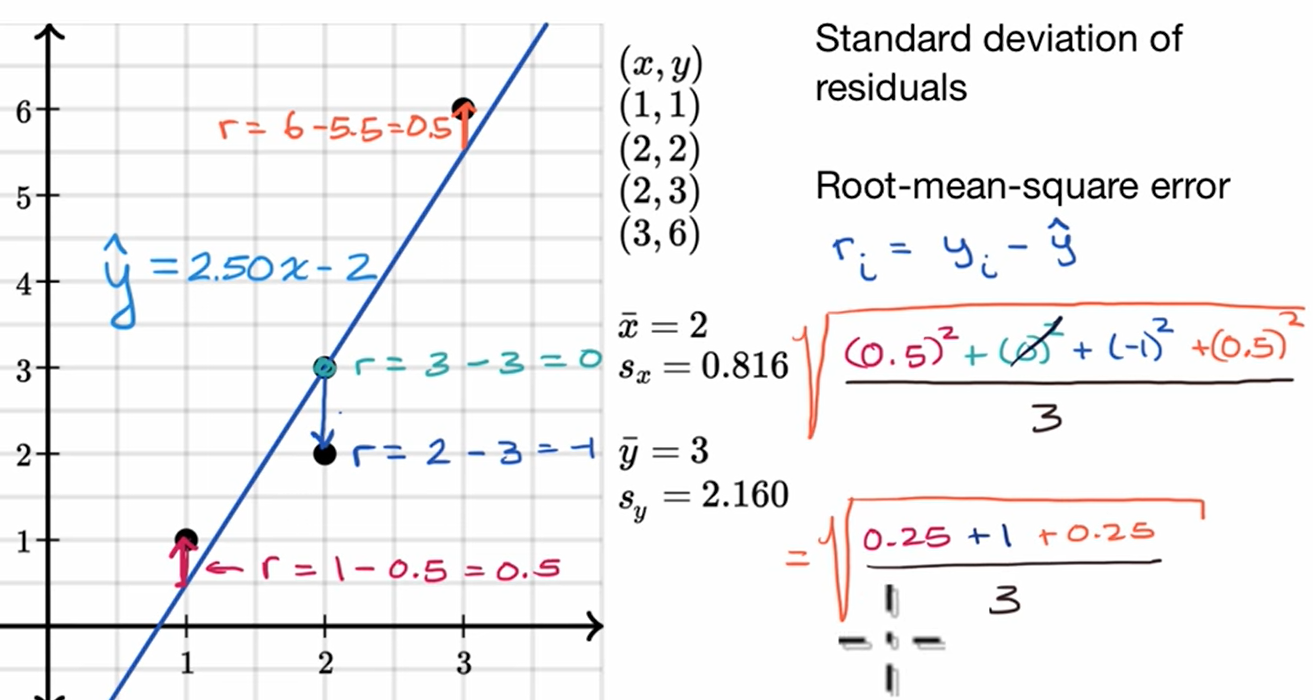 6
5
4
3
2
1
1 2 3
r = 6 - 5.5 = 0.5
ŷ = 2.50x - 2
r = 3 - 3 = 0
r = 2 - 3 = -1
← r = 1 - 0.5 = 0.5
(x, y)
(1, 1)
(2, 2)
(2, 3)
(3, 6)
x̄ = 2
sₓ = 0.816
ȳ = 3
s_y = 2.160
Standard deviation of
residuals
Root-mean-square error
rᵢ = yᵢ - ŷ
√((0.5)² + (0)² + (-1)² + (0.5)²
3
= √(0.25 + 1 + 0.25
3